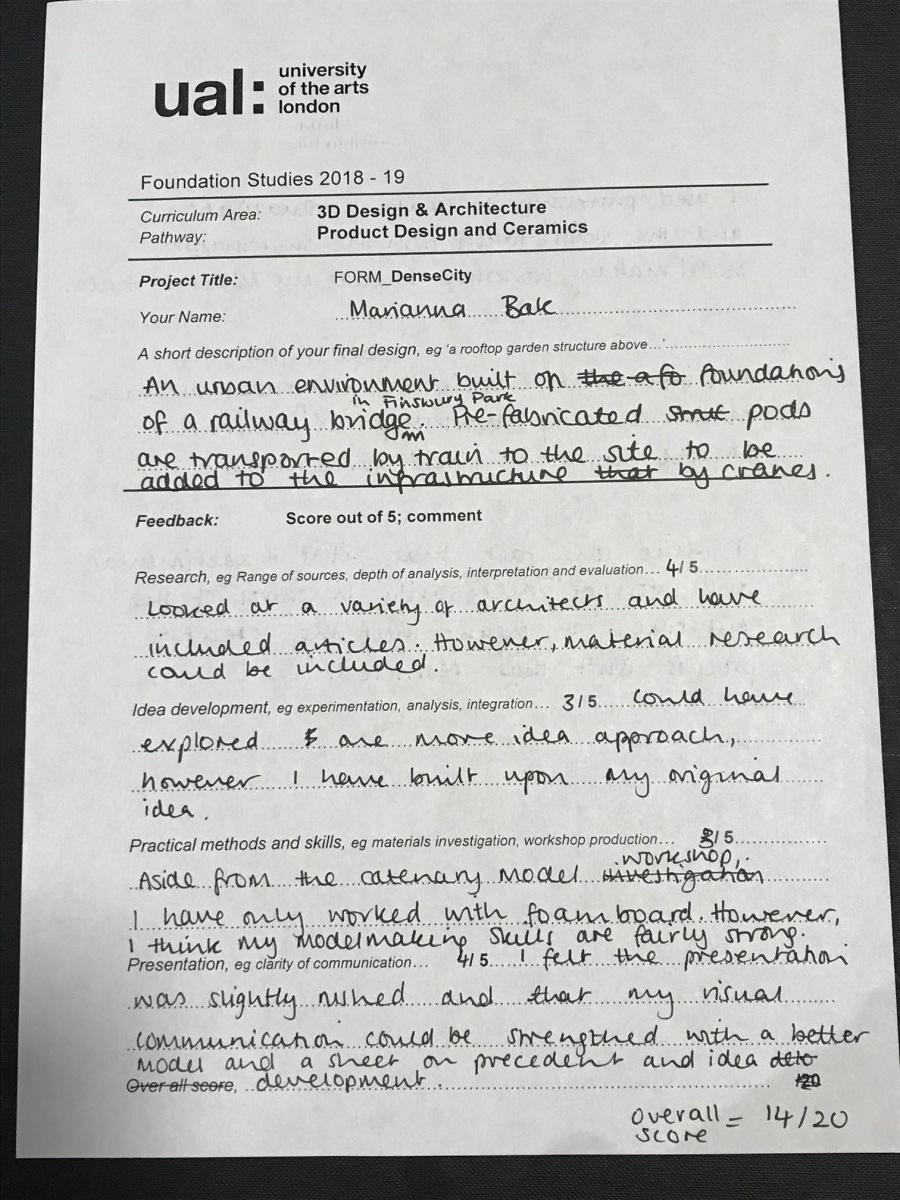 ual:
university
of the arts
london
Foundation Studies 2018 - 19
Curriculum Area: 3D Design & Architecture
Pathway: Product Design and Ceramics
Project Title: FORM_DenseCity
Your Name: Marianna Bak
A short description of your final design, eg 'a rooftop garden structure above...'
An urban environment built on the a fo foundations
in Finsbury Park
of a railway bridge. Pre-fabricated pods
are transported by train to the site to be
added to the infrastructure that by cranes.
Feedback: Score out of 5; comment
Research, eg Range of sources, depth of analysis, interpretation and evaluation... 4/5
Looked at a variety of architects and have
included articles. However, material research
could be included.
Idea development, eg experimentation, analysis, integration... 3/5 could have
explored are more idea approach,
however I have built upon my original
idea.
Practical methods and skills, eg materials investigation, workshop production... 3/5
workshop,
Aside from the catenary model investigation
I have only worked with foamboard. However,
I think my modelmaking skills are fairly strong.
Presentation, eg clarity of communication... 4/5 I felt the presentation
was slightly rushed and that my visual
communication could be strengthed with a better
model and a sheet on precedent and idea
Over all score, development. /20
overall = 14/20
score